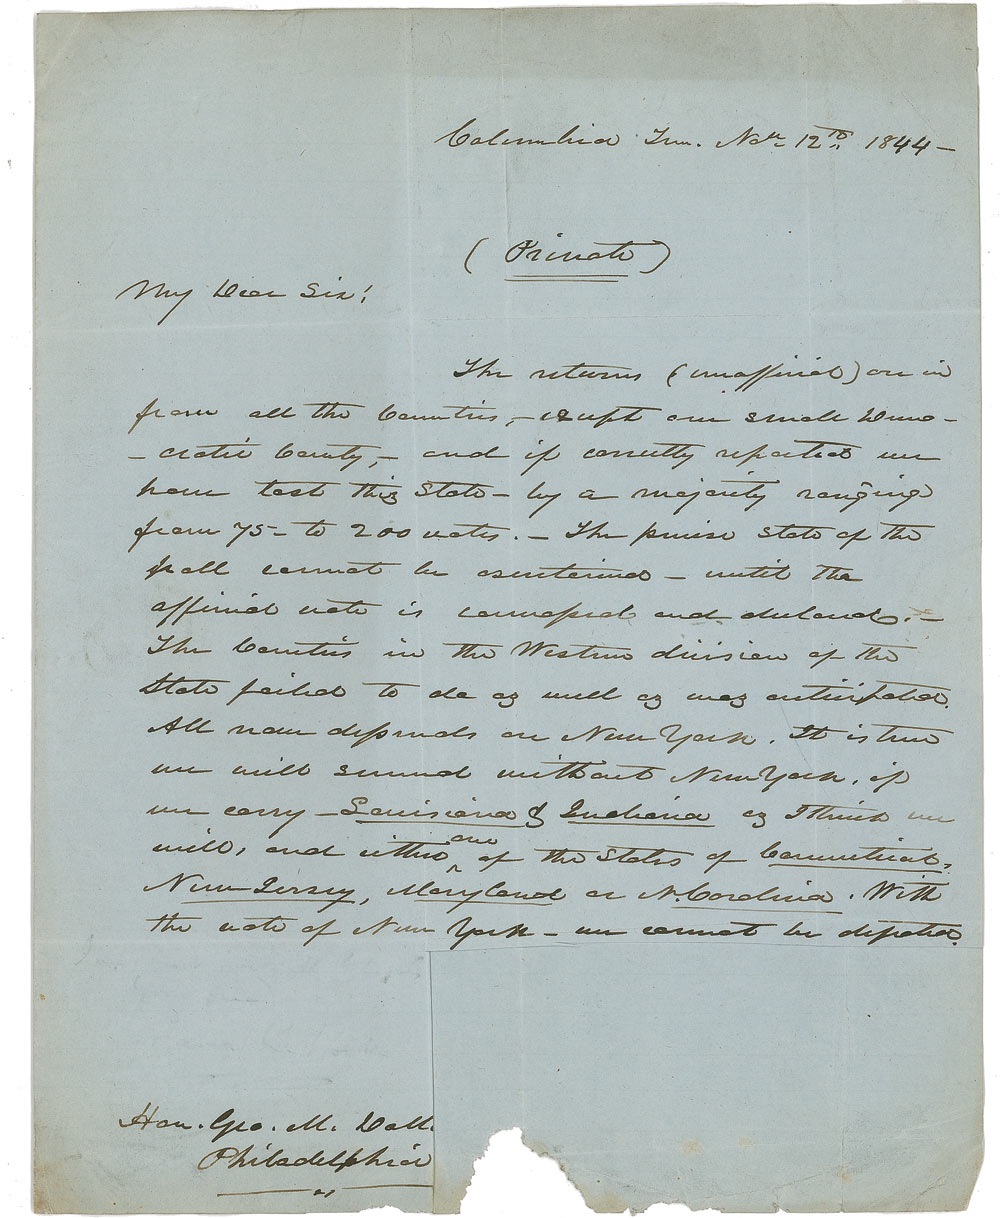 Columbia Ten. Novr 12th 1844 –
(Private)
My Dear Sir!
The returns (unofficial) are in
from all the Counties, – except one small Demo-
- cratic County, – and if correctly reported we
have lost this State – by a majority ranging
from 75 – to 200 votes. – The precise state of the
poll cannot be ascertained – until the
official vote is compared and declared. –
The Counties in the Western division of the
State failed to do as well as was anticipated.
All now depends on New York. It is true
we will succeed without New York, if
we carry – Louisiana & Indiana as I think we
will, and either one of the States of Connecticut,
New Jersey, Maryland or N. Carolina. With
the vote of New York – we cannot be defeated.
Hon. Geo. M. Dall
Philadelphia